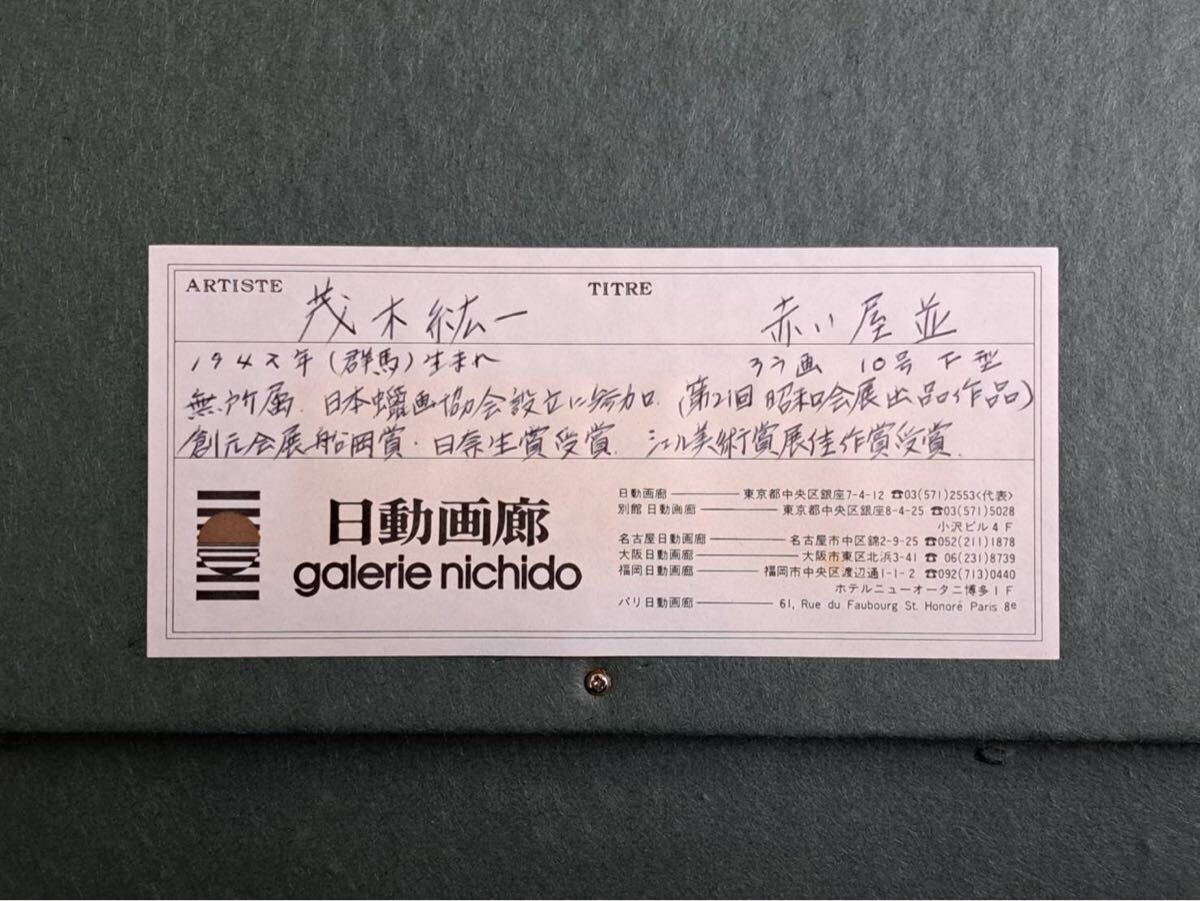 ARTISTE 茂木紘一 TITRE 赤い屋並
1942年(群馬)生まれ ろう画 10号F型
無所属. 日本蠟画協会設立に参加. (第21回昭和会展出品作品)
創元会展船岡賞・日奈生賞受賞. シェル美術賞展佳作賞受賞.
日動画廊
galerie nichido
日動画廊 東京都中央区銀座7-4-12 ☎03(571)2553<代表>
別館日動画廊 東京都中央区銀座8-4-25 ☎03(571)5028
小沢ビル4F
名古屋日動画廊 名古屋市中区錦2-9-25 ☎052(211)1878
大阪日動画廊 大阪市東区北浜3-41 ☎06(231)8739
福岡日動画廊 福岡市中央区渡辺通1-1-2 ☎092(713)0440
ホテルニューオータニ博多1F
パリ日動画廊 61, Rue du Faubourg St. Honoré Paris 8e